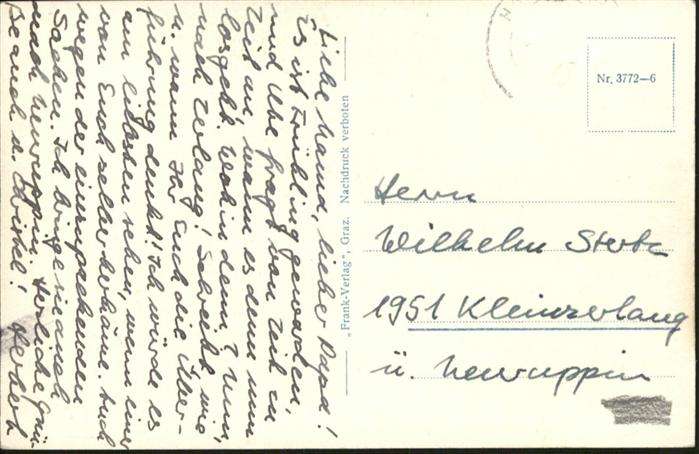 Liebe Mama, lieber Papa!
Es ist Frühling geworden,
und Ute fragt von Zeit zu
Zeit an, wann es denn nun
losgeht. Wohin denn? Nun,
nach Zerlang! Schreibt, wie
u. wann Ihr Euch die Über-
führung denkt! Ich würde es
am liebsten sehen, wenn einer
von Euch selber herkäme. Auch
wegen der einzupackenden
Sachen. Ich bringe sie danach
nach Neuruppin. Herzliche Grü-
ße auch a. Christel! Herbert
„Frank-Verlag", Graz. Nachdruck verboten
Nr. 3772—6
Herrn
Wilhelm
1951 Kleinzerlang
ü. Neuruppin